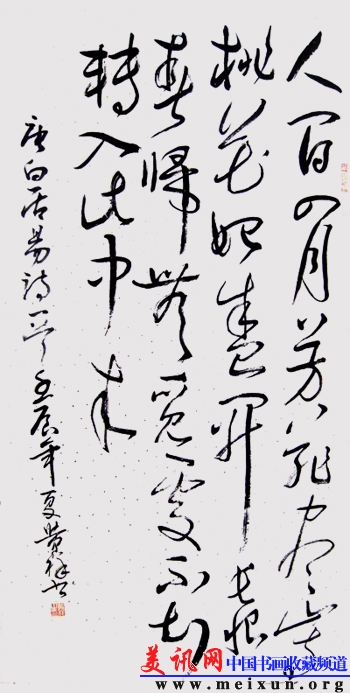 人间四月芳菲尽山寺
桃花始盛開長恨
春歸無覓處不知
轉入此中来
唐白居易詩一首 壬辰年夏黄祥书
美讯网 中国书画收藏频道
www.meixun.org